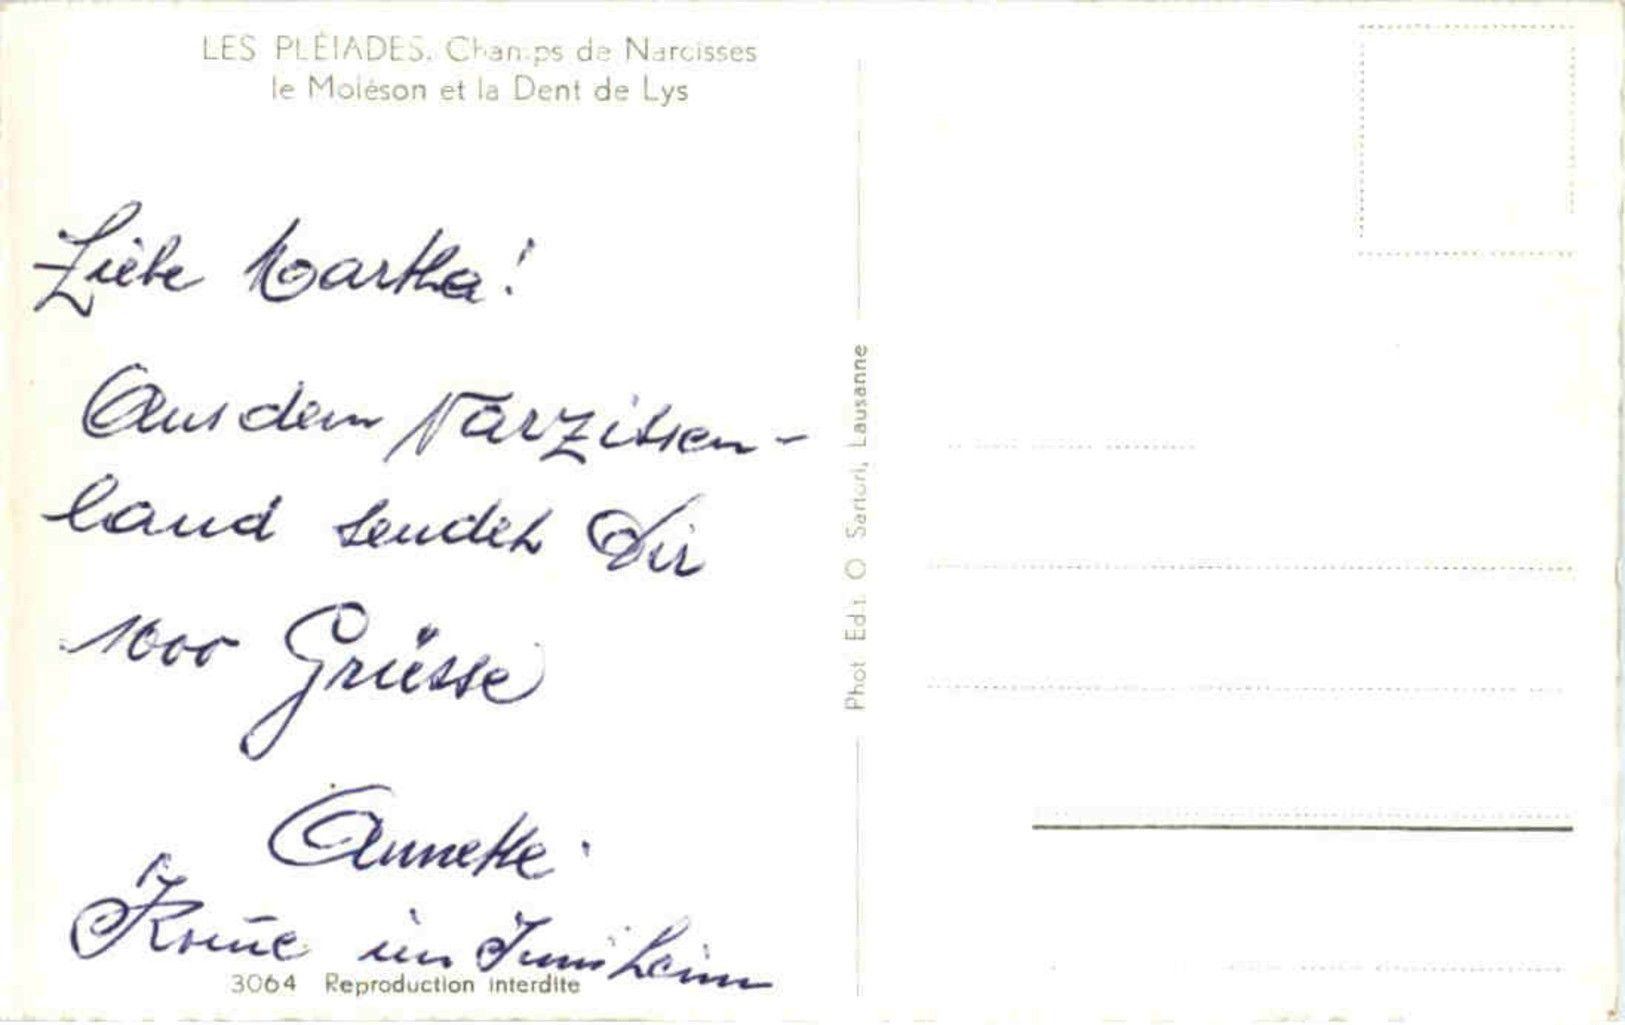 LES PLÉIADES. Champs de Narcisses
le Moléson et la Dent de Lys
Liebe Martha!
Aus dem Narzissen-
land sendet Dir
1000 Grüsse
Annette.
Komme im Juni heim
3064 Reproduction interdite
Phot Edit. O Sartori, Lausanne